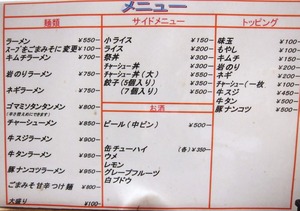 メニュー
麺類
ラーメン ¥550-
スープをごまみそに変更 ¥100-
キムチラーメン ¥750-
岩のりラーメン ¥750-
ネギラーメン ¥750-
ゴマミソタンタンメン ¥850-
チャーシューメン ¥850-
牛スジラーメン ¥900-
牛タンラーメン ¥950-
豚ナンコツラーメン ¥950-
ごまみそ甘辛つけ麺 ¥800-
大盛り ¥100-
サイドメニュー
小ライス ¥150-
ライス ¥200-
祭丼
チャーシュー丼 ¥300-
チャーシュー丼(大) ¥550-
餃子(5個入り) ¥350-
(7個入り) ¥500-
お酒
ビール(中ビン) ¥500-
缶チューハイ (各)¥350-
ウメ
レモン
グレープフルーツ
白ブドウ
トッピング
味玉 ¥100-
もやし ¥100-
キムチ ¥150-
岩のり
ネギ
チャーシュー(一枚
牛スジ
牛タン
豚ナンコツ